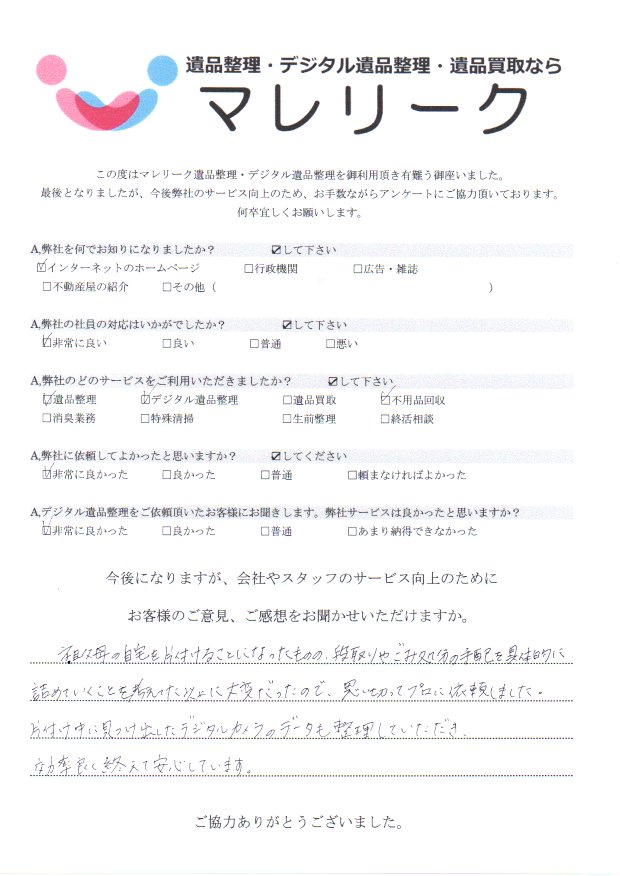 遺品整理・デジタル遺品整理・遺品買取なら
マレリーク
この度はマレリーク遺品整理・デジタル遺品整理を御利用頂き有難う御座いました。
最後となりましたが、今後弊社のサービス向上のため、お手数ながらアンケートにご協力頂いております。
何卒宜しくお願いします。
A,弊社を何でお知りになりましたか？ ☑して下さい
☑インターネットのホームページ □行政機関 □広告・雑誌
□不動産屋の紹介 □その他（ ）
A,弊社の社員の対応はいかがでしたか？ ☑して下さい
☑非常に良い □良い □普通 □悪い
A,弊社のどのサービスをご利用いただきましたか？ ☑して下さい
☑遺品整理 ☑デジタル遺品整理 □遺品買取 ☑不用品回収
□消臭業務 □特殊清掃 □生前整理 □終活相談
A,弊社に依頼してよかったと思いますか？ ☑してください
☑非常に良かった □良かった □普通 □頼まなければよかった
A,デジタル遺品整理をご依頼頂いたお客様にお聞きします。弊社サービスは良かったと思いますか？
☑非常に良かった □良かった □普通 □あまり納得できなかった
今後になりますが、会社やスタッフのサービス向上のために
お客様のご意見、ご感想をお聞かせいただけますか。
祖父母の自宅を片付けることになったものの、段取りやごみ処分の手配を具体的に
詰めていくことを考えた以上に大変だったので、思い切ってプロに依頼しました。
片付け中に見つけ出したデジタルカメラのデータも整理していただき、
効率良く終えて安心しています。
ご協力ありがとうございました。